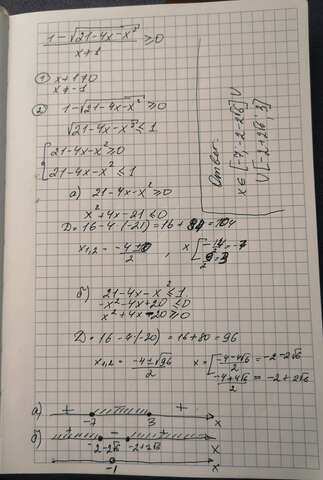 1-√21-4x-x² / x+1 ≥0
① x+1≠0
x≠-1
② 1-√21-4x-x² ≥0
√21-4x-x² ≤1
{21-4x-x²≥0
21-4x-x² ≤1
а) 21-4x-x²≥0
x²+4x-21≤0
D=16-4·(-21)=16+84=104
x₁,₂= -4±10 / 2 , x[ -14/2=-7
6/2=3
б) 21-4x-x²≤1
-x²-4x+20≤0
x²+4x-20≥0
D=16-4(-20)=16+80=96
x₁,₂= -4±√96 / 2 x=[ -4-4√6 / 2 =-2-2√6
-4+4√6 / 2 =-2+2√6
а) + - +
-7 3 x
б) + - +
-2-2√6 -2+2√6 x
-1 x
Ответ:
x∈[-7;-2-2√6]∪
∪[-2+2√6;3]